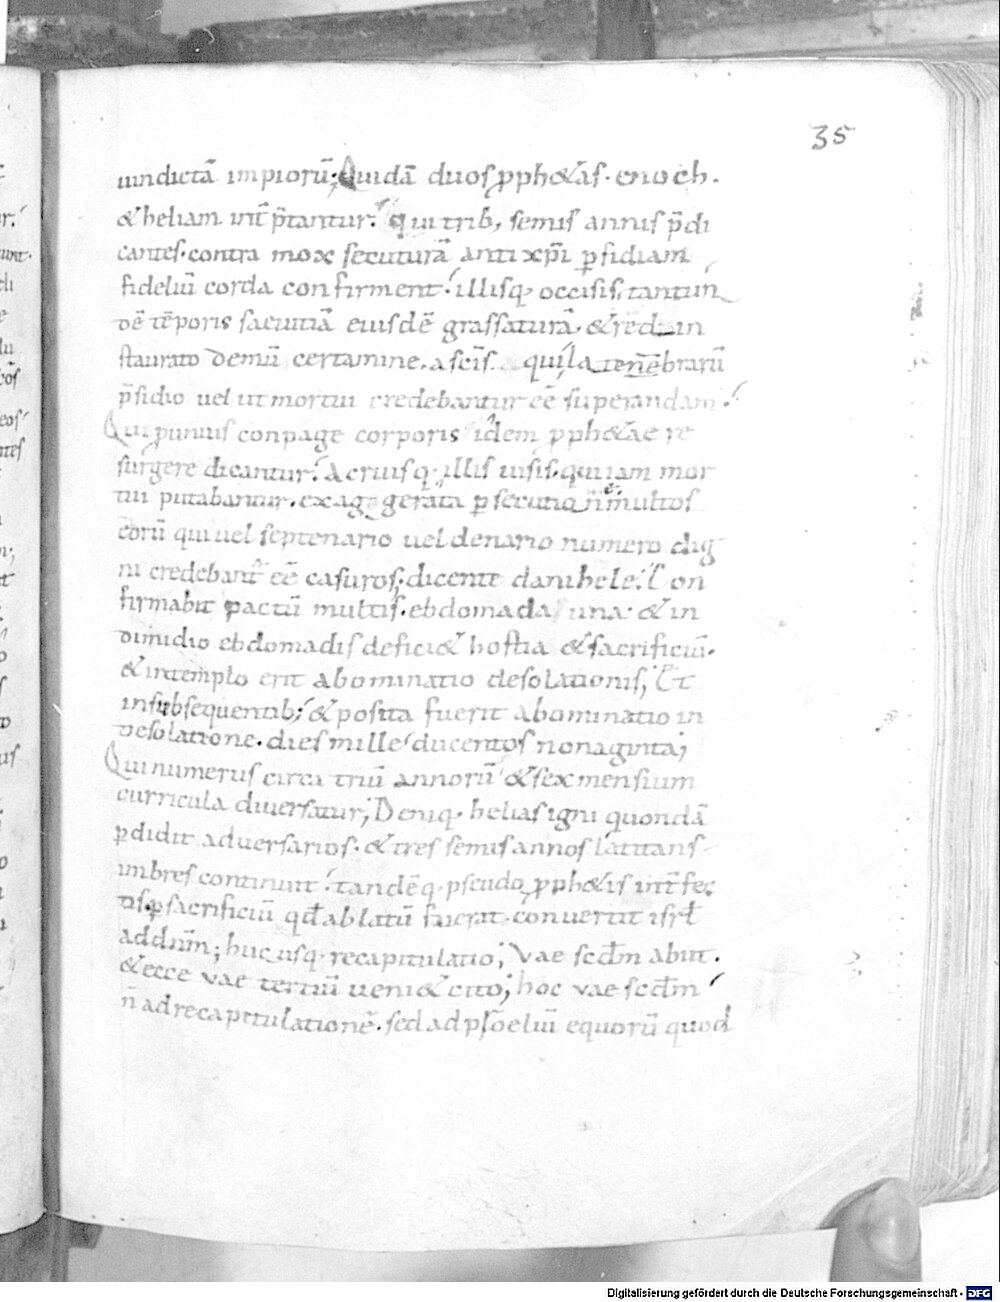 35
uindictā impiorū; Quidā duos pph&as. enoch.
& heliam int̄ p̄tantur. qui trib, semis annis p̄di
cantes. contra mox secuturā anti xp̄i p̄fidiam
fideliū corda confirment. illisq. occisis, tantun
dē tēporis saeuitiā eiusdē grassaturā. & red in
staurato demū certamine. a scīs. qui latenēbrarū
p̄sidio uel ut mortui credebantur eē superandam.
Qui p unius conpage corporis idem pph&ae re
surgere dicantur. Acriusq. illis uisis. qui iam mor
tui putabantur. exag gerata p̄secutio n̄ multos
eorū qui uel septenario uel denario numero dig
ni credebant̄ eē casuros; dicente danihele. Con
firmabit pactū multis. ebdomada una. & in
dimidio ebdomadis defici& hostia & sacrificiū.
& intemplo erit abominatio desolationis; Et
insubsequentib; & posita fuerit abominatio in
desolatione. dies mille ducentos nonaginta;
Qui numerus circa triū annorū & sex mensium
curricula diuersatur; Deniq. helias igni quondā
p̄didit aduersarios. & tres semis annos latitans
imbres continuit. tandēq. pseudo pph&is int̄fec
tis p sacrificiū qđ ablatū fuerat. conuertit isrł
ad dn̄m; huc usq. recapitulatio; Vae scdm̄ abiit.
& ecce vae tertiū ueni& cito; hoc vae scdm̄
n̄ ad recapitulationē. sed ad p̄lioeliū equorū quod
Digitalisierung gefördert durch die Deutsche Forschungsgemeinschaft - DFG